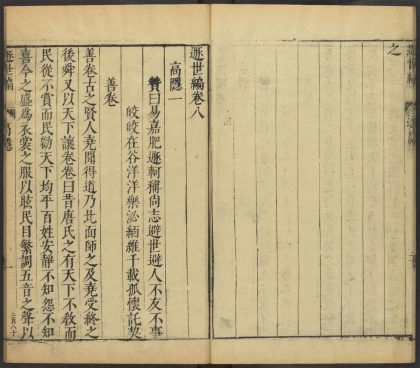 之
遯世編卷八
高隱一
贊曰易嘉肥遯軻稱尚志避世避人不友不事
皎皎在谷洋洋樂泌緬維千載孤懷託契
善卷
善卷古之賢人堯聞得道乃北面師之及堯受終之
後舜又以天下讓卷卷曰昔唐氏之有天下不教而
民從不賞而民勸天下均平百姓安靜不知怨不知
喜今之盛爲衣裳之服以眩民目繁調五音之聲以
遯世編